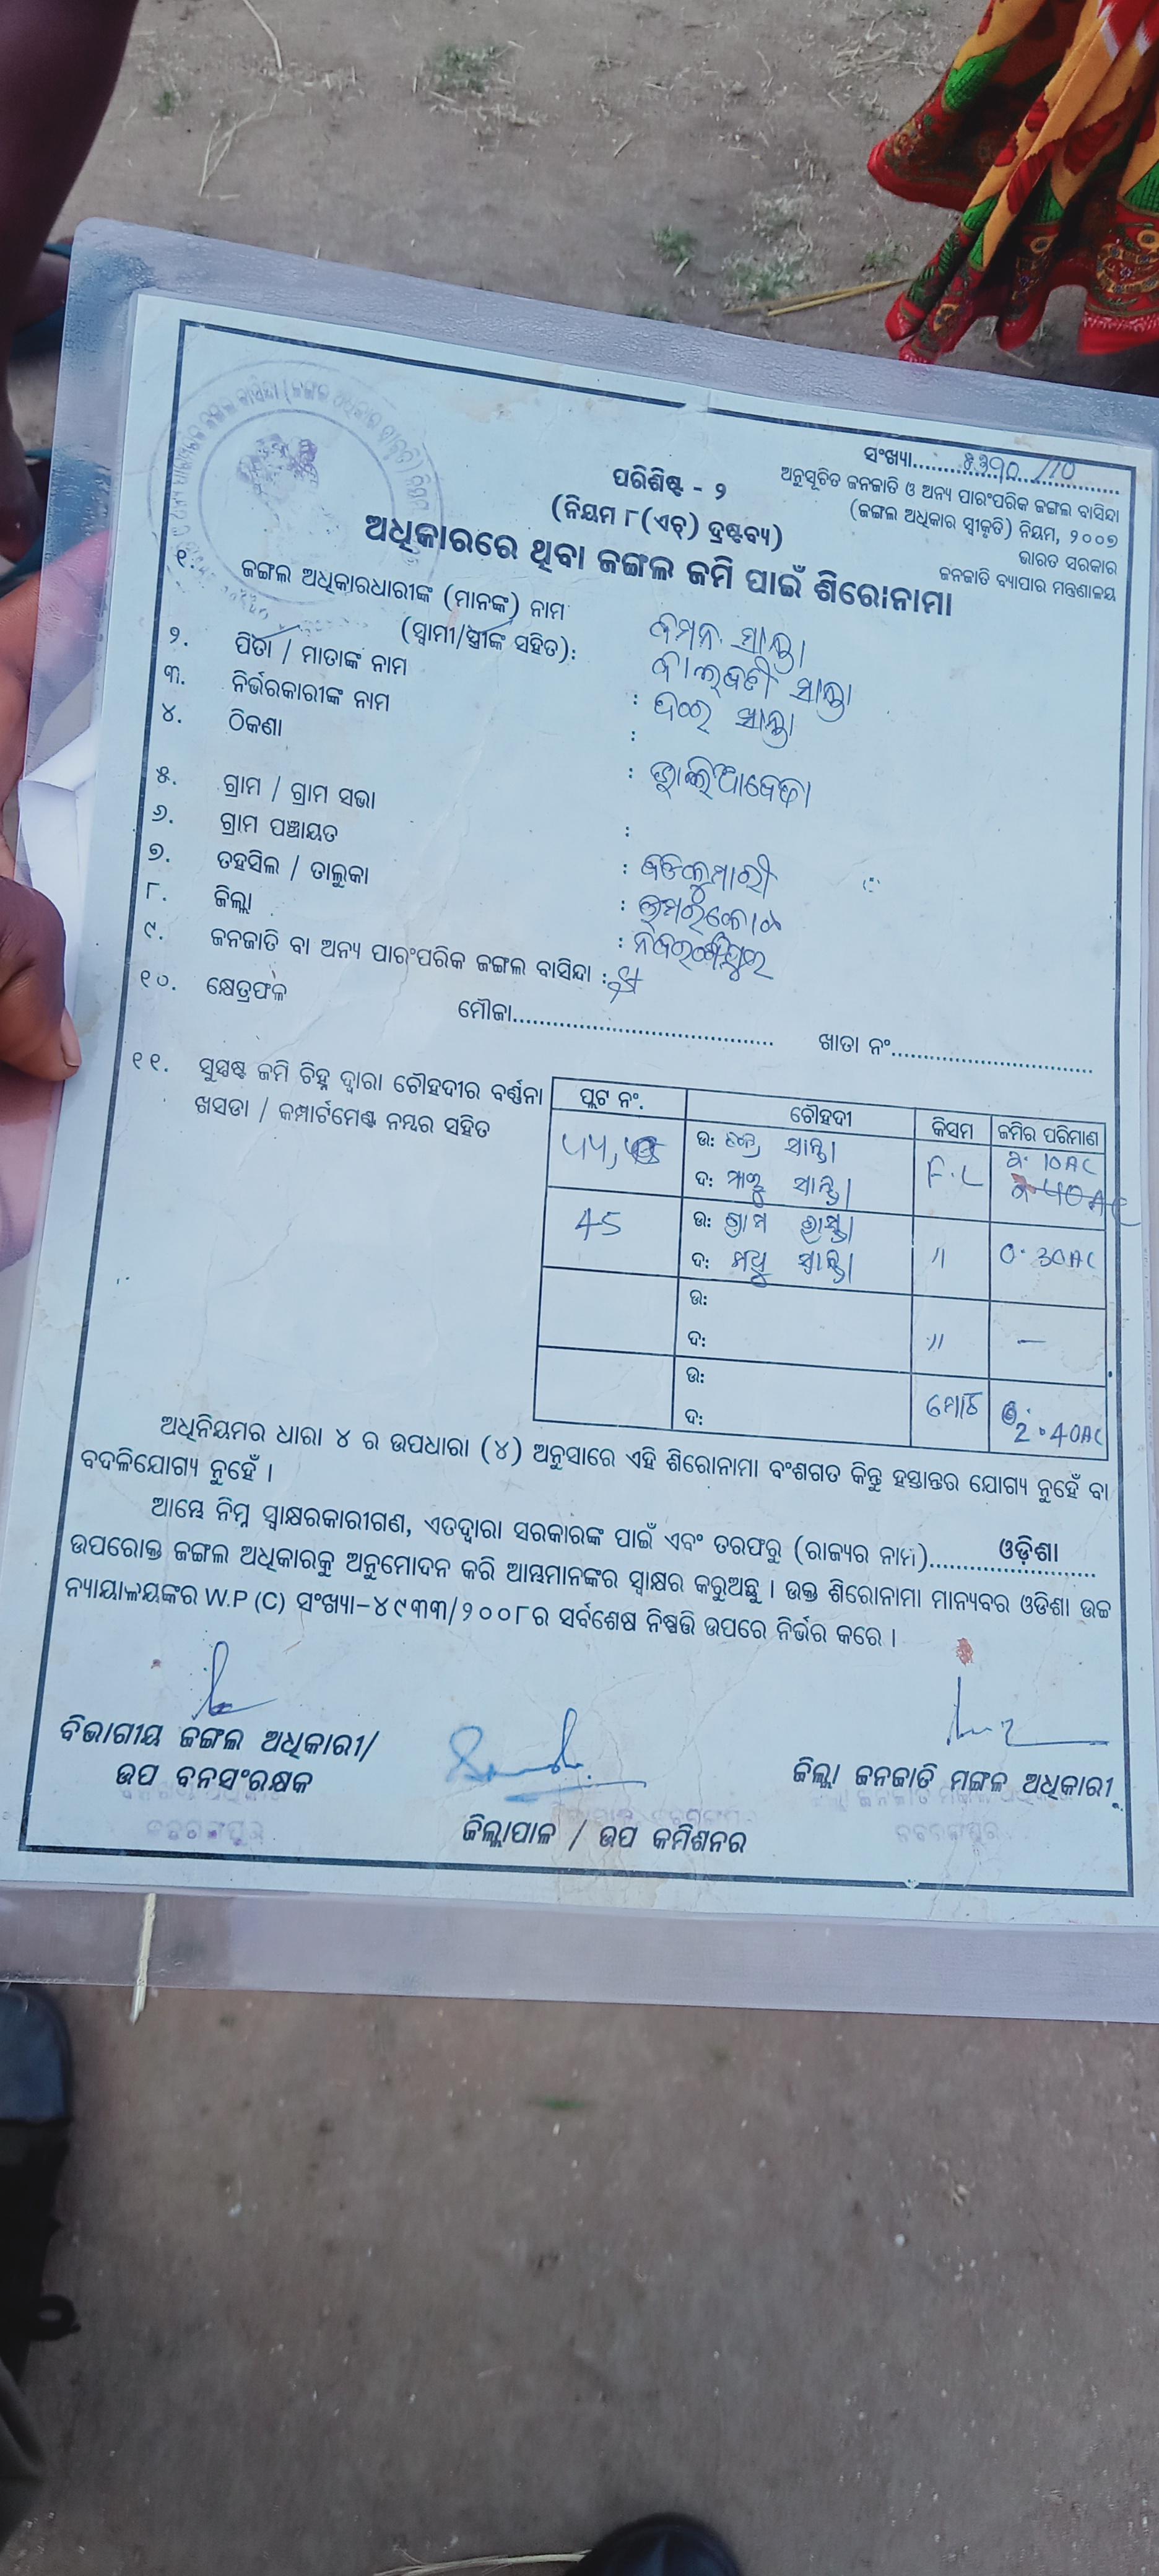 ସଂଖ୍ୟା........................./10
ଅନୁସୂଚିତ ଜନଜାତି ଓ ଅନ୍ୟ ପାରଂପରିକ ଜଙ୍ଗଲ ବାସିନ୍ଦା
(ଜଙ୍ଗଲ ଅଧିକାର ସ୍ୱୀକୃତି) ନିୟମ, ୨୦୦୭
ଭାରତ ସରକାର
ଜନଜାତି ବ୍ୟାପାର ମନ୍ତ୍ରଣାଳୟ
ପରିଶିଷ୍ଟ - ୨
(ନିୟମ ୮(ଏଚ୍) ଦ୍ରଷ୍ଟବ୍ୟ)
ଅଧିକାରରେ ଥିବା ଜଙ୍ଗଲ ଜମି ପାଇଁ ଶିରୋନାମା
୧. ଜଙ୍ଗଲ ଅଧିକାରଧାରୀଙ୍କ (ମାନଙ୍କ) ନାମ
(ସ୍ୱାମୀ/ସ୍ତ୍ରୀଙ୍କ ସହିତ):
ସାନ୍ତା
ସାନ୍ତା
୨. ପିତା / ମାତାଙ୍କ ନାମ : ସାନ୍ତା
୩. ନିର୍ଭରକାରୀଙ୍କ ନାମ :
୪. ଠିକଣା :
୫. ଗ୍ରାମ / ଗ୍ରାମ ସଭା :
୬. ଗ୍ରାମ ପଞ୍ଚାୟତ : ବଡକୁମାରୀ
୭. ତହସିଲ / ତାଲୁକା : ଉମରକୋଟ
୮. ଜିଲ୍ଲା : ନବରଙ୍ଗପୁର
୯. ଜନଜାତି ବା ଅନ୍ୟ ପାରଂପରିକ ଜଙ୍ଗଲ ବାସିନ୍ଦା :
୧୦. କ୍ଷେତ୍ରଫଳ ମୌଜା.................................... ଖାତା ନଂ............................
୧୧. ସୁସ୍ପଷ୍ଟ ଜମି ଚିହ୍ନ ଦ୍ୱାରା ଚୌହଦୀର ବର୍ଣ୍ଣନା
ଖସଡା / କମ୍ପାର୍ଟମେଣ୍ଟ ନମ୍ବର ସହିତ
ପ୍ଲଟ ନଂ. ଚୌହଦୀ କିସମ ଜମିର ପରିମାଣ
ଉ: ସାନ୍ତା F.L 2.10AC
ଦ: ସାନ୍ତା
45 ଉ: ଗ୍ରାମ ରାସ୍ତା " 0.30AC
ଦ: ମଧୁ ସାନ୍ତା
ଉ: " —
ଦ:
ଉ: ମୋଟ 2.40AC
ଦ:
ଅଧିନିୟମର ଧାରା ୪ ର ଉପଧାରା (୪) ଅନୁସାରେ ଏହି ଶିରୋନାମା ବଂଶଗତ କିନ୍ତୁ ହସ୍ତାନ୍ତର ଯୋଗ୍ୟ ନୁହେଁ ବା
ବଦଳିଯୋଗ୍ୟ ନୁହେଁ ।
ଆମ୍ଭେ ନିମ୍ନ ସ୍ୱାକ୍ଷରକାରୀଗଣ, ଏତଦ୍ୱାରା ସରକାରଙ୍କ ପାଇଁ ଏବଂ ତରଫରୁ (ରାଜ୍ୟର ନାମ)......ଓଡ଼ିଶା......
ଉପରୋକ୍ତ ଜଙ୍ଗଲ ଅଧିକାରକୁ ଅନୁମୋଦନ କରି ଆମ୍ଭମାନଙ୍କର ସ୍ୱାକ୍ଷର କରୁଅଛୁ । ଉକ୍ତ ଶିରୋନାମା ମାନ୍ୟବର ଓଡିଶା ଉଚ୍ଚ
ନ୍ୟାୟାଳୟଙ୍କର W.P (C) ସଂଖ୍ୟା-୪୯୩୩/୨୦୦୮ର ସର୍ବଶେଷ ନିଷ୍ପତ୍ତି ଉପରେ ନିର୍ଭର କରେ ।
ବିଭାଗୀୟ ଜଙ୍ଗଲ ଅଧିକାରୀ/
ଉପ ବନସଂରକ୍ଷକ
ଜିଲ୍ଲାପାଳ / ଉପ କମିଶନର
ଜିଲ୍ଲା ଜନଜାତି ମଙ୍ଗଳ ଅଧିକାରୀ